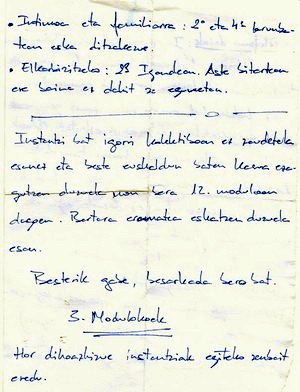 • Intimoa eta familiarra: 2º eta 4º larunba-
tean eska ditzakezue.
• Elkarbizitzako: 28 Igandean. Aste bitartean
ere baina ez dakit ze egunetan.
Instantzi bat igorri kolektiboan ez zaudetela
esanez eta beste euskaldun baten kasua eza-
gutzen duzuela non bera 12. moduloan
dagoen. Bertara eramatea eskatzen duzuela
esan.
Besterik gabe, besarkada bero bat.
3. Modulokoek
Hor dihoazkizue instantziak egiteko zenbait
eredu.